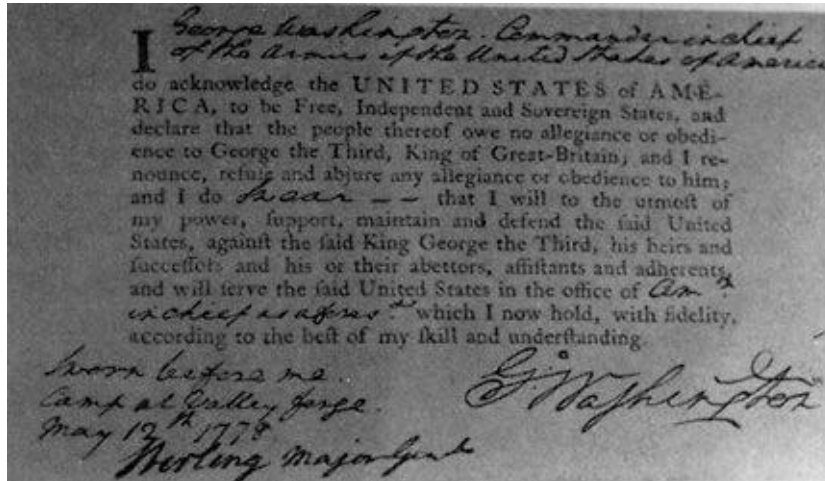 I George Washington Commander in chief
of the Armies of the United States of America
do acknowledge the UNITED STATES of AME-
RICA, to be Free, Independent and Sovereign States, and
declare that the people thereof owe no allegiance or obedi-
ence to George the Third, King of Great-Britain; and I re-
nounce, refuſe and abjure any allegiance or obedience to him;
and I do Swear – – that I will to the utmoſt of
my power, ſupport, maintain and defend the ſaid United
States, againſt the ſaid King George the Third, his heirs and
ſucceſſors and his or their abettors, aſſiſtants and adherents,
and will ſerve the ſaid United States in the office of Comr
in chief as afores.d which I now hold, with fidelity,
according to the beſt of my ſkill and underſtanding.
Sworn before me
Camp at Valley forge
May 12th 1778
Stirling Major Genl
G:Washington